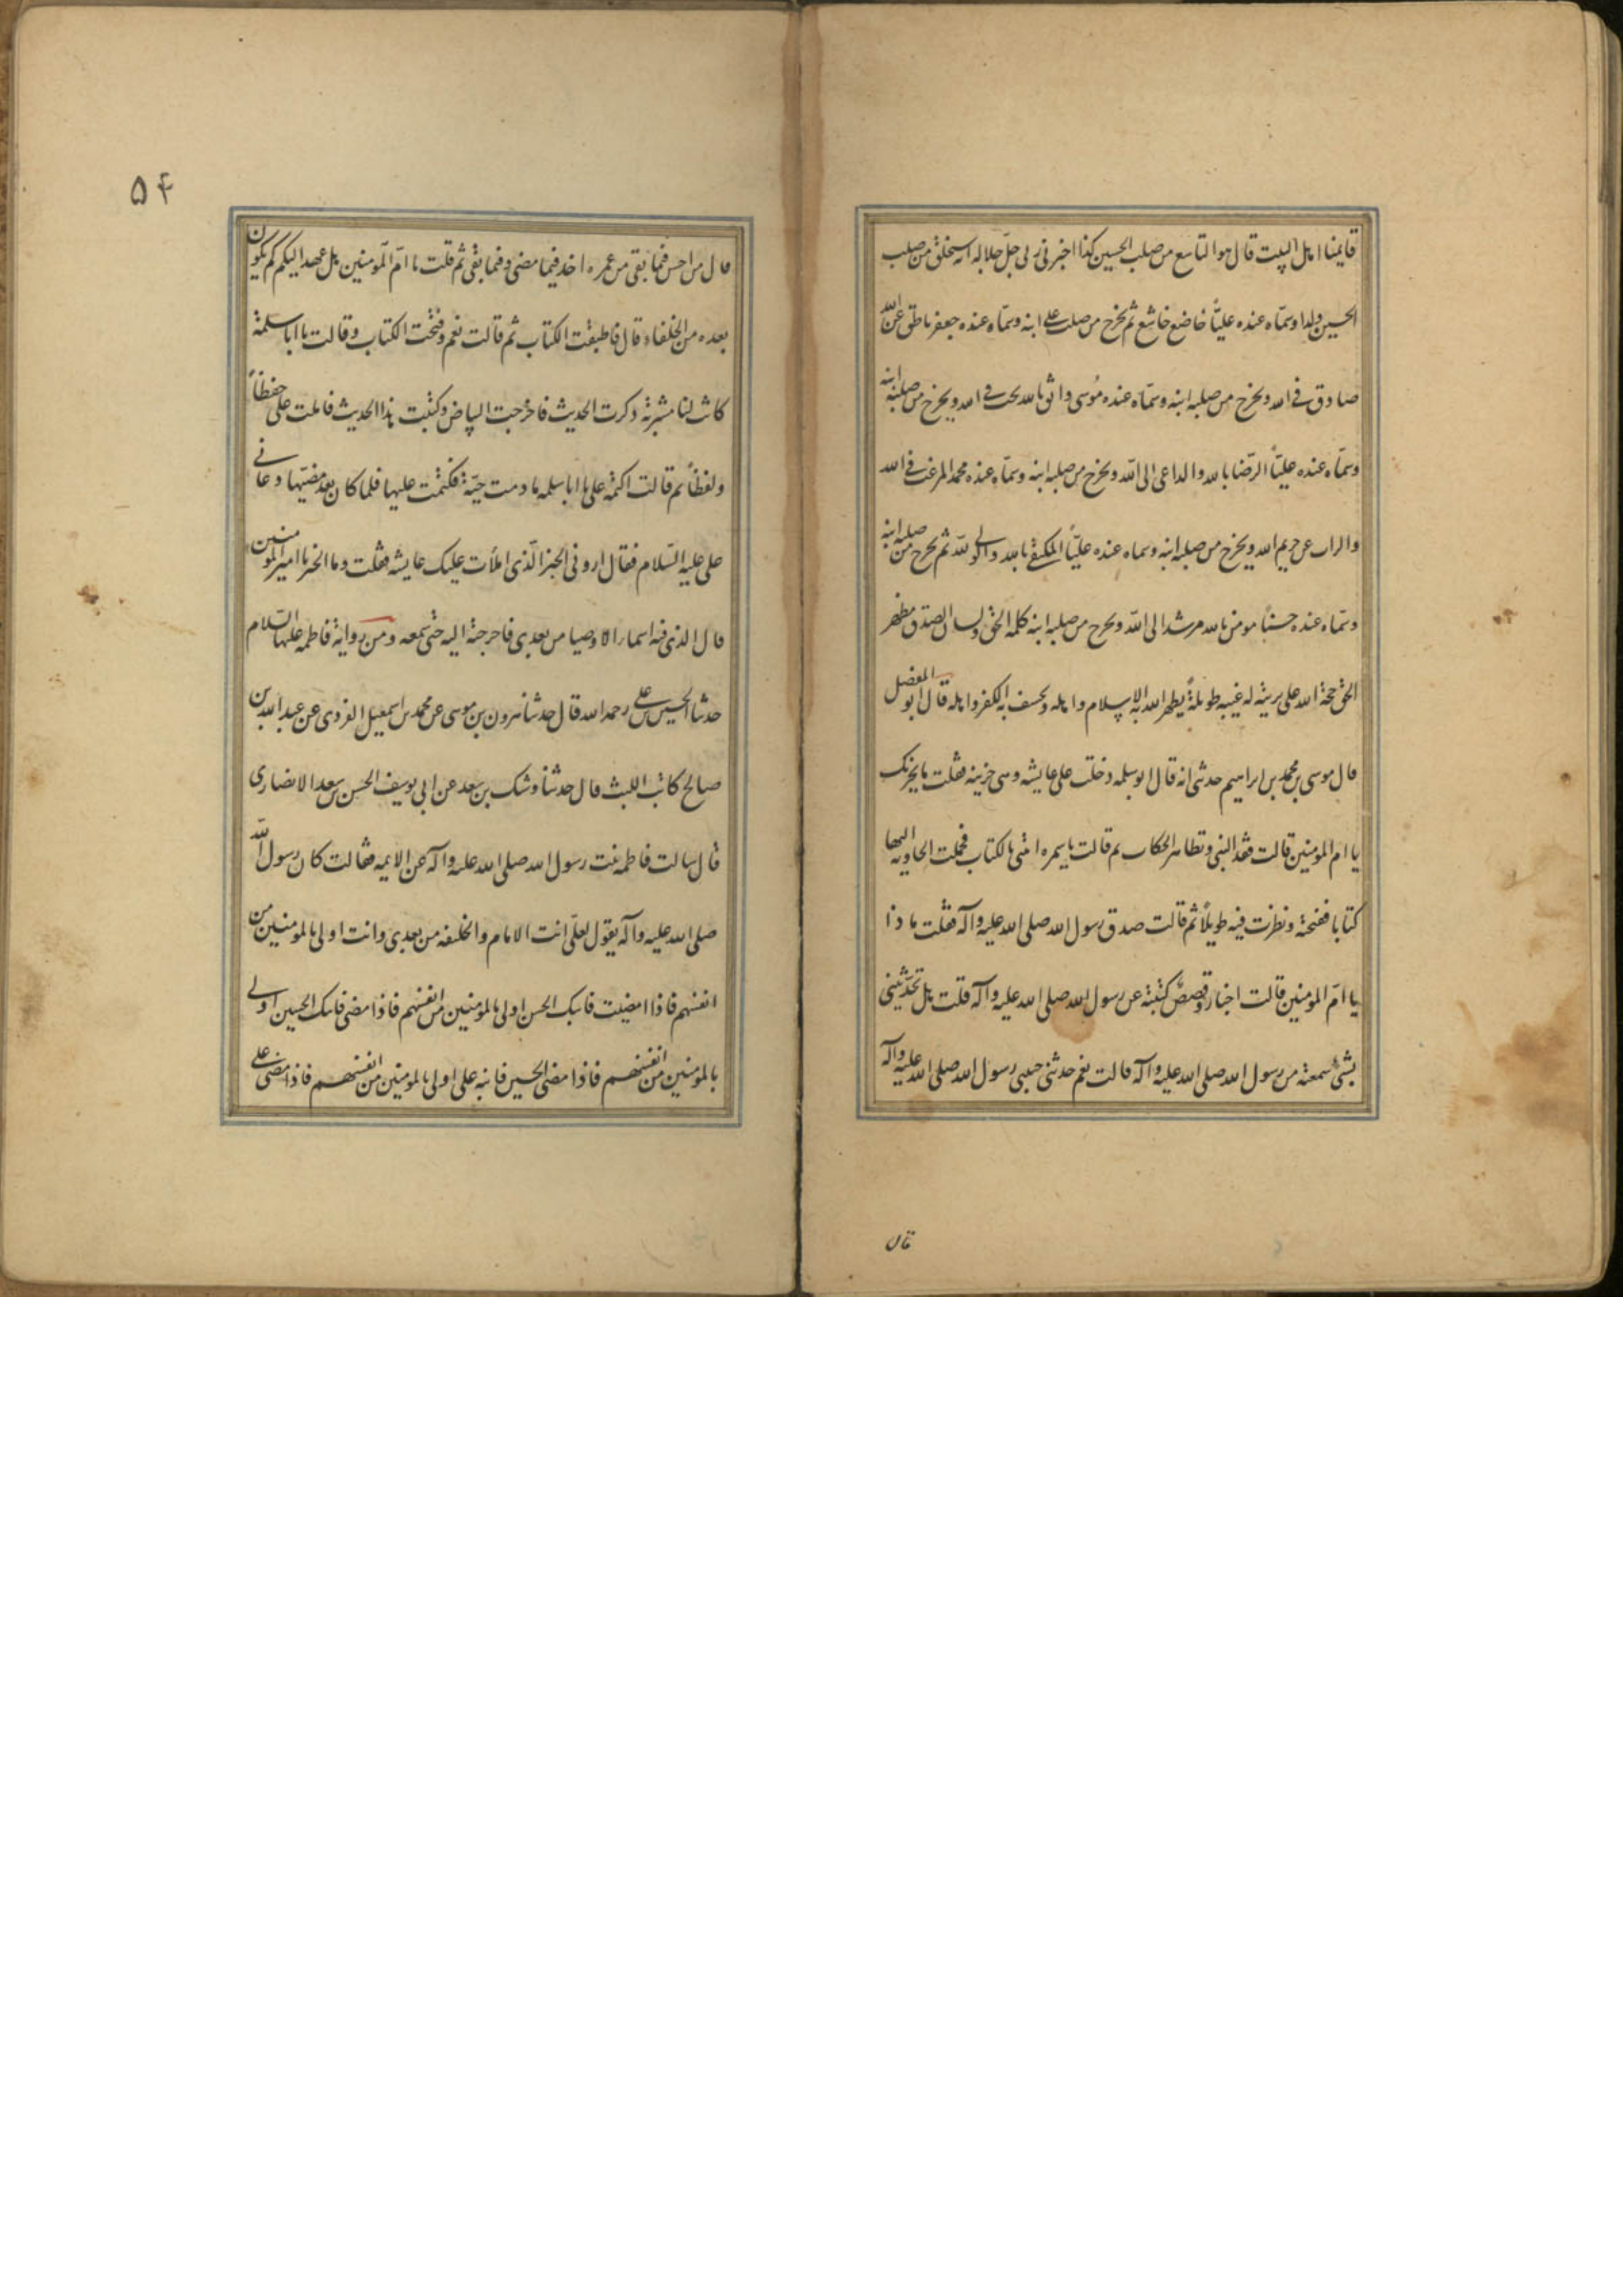 قايمنا اهل البيت قال هو التاسع من صلب الحسين كذا اخبرنى ربى جل جلاله انه سيخلق من صلب
الحسين ولدا وسماه عنده عليّاً خاضع خاشع ثم يخرج من صلب على ابنه وسماه عنده جعفر ناطق عن الله
صادق فى الله ويخرج من صلبه ابنه وسماه عنده مُوسى واثق بالله محب فى الله ويخرج من صلبه ابنه
وسماه عنده عليّاً الرضا بالله والداعى الى الله ويخرج من صلبه ابنه وسماه عنده محمد المرغب فى الله
والذاب عن حريم الله ويخرج من صلبه ابنه وسماه عنده عليّاً المكتفى بالله والولى لله ثم يخرج من صلبه ابنه
وسماه عنده حسناً مومن بالله مرشد الى الله ويخرج من صلبه ابنه كلمه الحق ولسان الصدق مظهر
الحق حجة الله على بريته له غيبه طويلة يظهر الله به الاسلام واهله ويخسف به الكفر واهله قال ابو المفضل
قال موسى بن محمد بن ابراهيم حدثنى انه قال ابو سلمه دخلت على عايشه وهى حزينه فقلت ما يحزنك
يا ام المومنين قالت فقد النبى وتظاهر الحكاب ثم قالت يا سمره ائتنى بالكتاب فحملت الجاريه اليها
كتابا ففتحته ونظرت فيه طويلاً ثم قالت صدق رسول الله صلى الله عليه وآله فقلت ماذا
يا امّ المومنين قالت اخبار وقصص كتبته عن رسول الله صلى الله عليه وآله قلت هل تحدّثينى
بشئ سمعته من رسول الله صلى الله عليه وآله قالت نعم حدثنى حبيبى رسول الله صلى الله عليه وآله
قال
۵۴
قال من احسن فيما بقى من عمره اخذ فيما مضى وفيما بقى ثم قلت يا امّ المومنين هل عهد اليكم كم يكون
بعده من الخلفاء قال فاطبقت الكتاب ثم قالت نعم وفتحت الكتاب وقالت يا ابا سلمة
كانت لنا مشربة وذكرت الحديث فاخرجت البياض وكتبت هذا الحديث فاملت على حفظاً
ولفظاً ثم قالت اكتمه على يا ابا سلمه ما دمت حيّة فكتمت عليها فلما كان بعد مضيّها دعانى
على عليه السّلام فقال ارونى الخبر الّذى املأت عليك عايشه فقلت وما الخبر يا امير المومنين
قال الذى فيه اسماء الاوصيا من بعدى فاخرجته اليه حتى سمعه ومن رواية فاطمه عليها السّلام
حدثنا الحسين بن على رحمه الله قال حدثنا هرون بن موسى عن محمد بن اسمعيل الفزدى عن عبد الله بن
صالح كاتب الليث قال حدثنا وشك بن سعد عن ابى يوسف الحسن بن سعد الانصارى
قال سالت فاطمه بنت رسول الله صلى الله عليه وآله عن الايمه فقالت كان رسول الله
صلى الله عليه وآله يقول لعلّى انت الامام والخليفه من بعدى وانت اولى بالمومنين من
انفسهم فاذا امضيت فابنك الحسن اولى بالمومنين من انفسهم فاذا مضى فابنك الحسين اولى
بالمومنين من انفسهم فاذا مضى الحسين فابنه على اولى بالمومنين من انفسهم فاذا مضى على